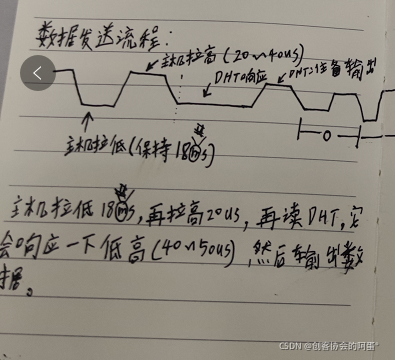 数据发送流程:
主机拉高(20~40us)
DHT响应
DHT准备输出
主机拉低(保持18ms)
0
主机拉低18ms,再拉高20us,再读DHT,它
会响应一下低高(40~50us),然后输出数
据。
CSDN @创客协会的阿金